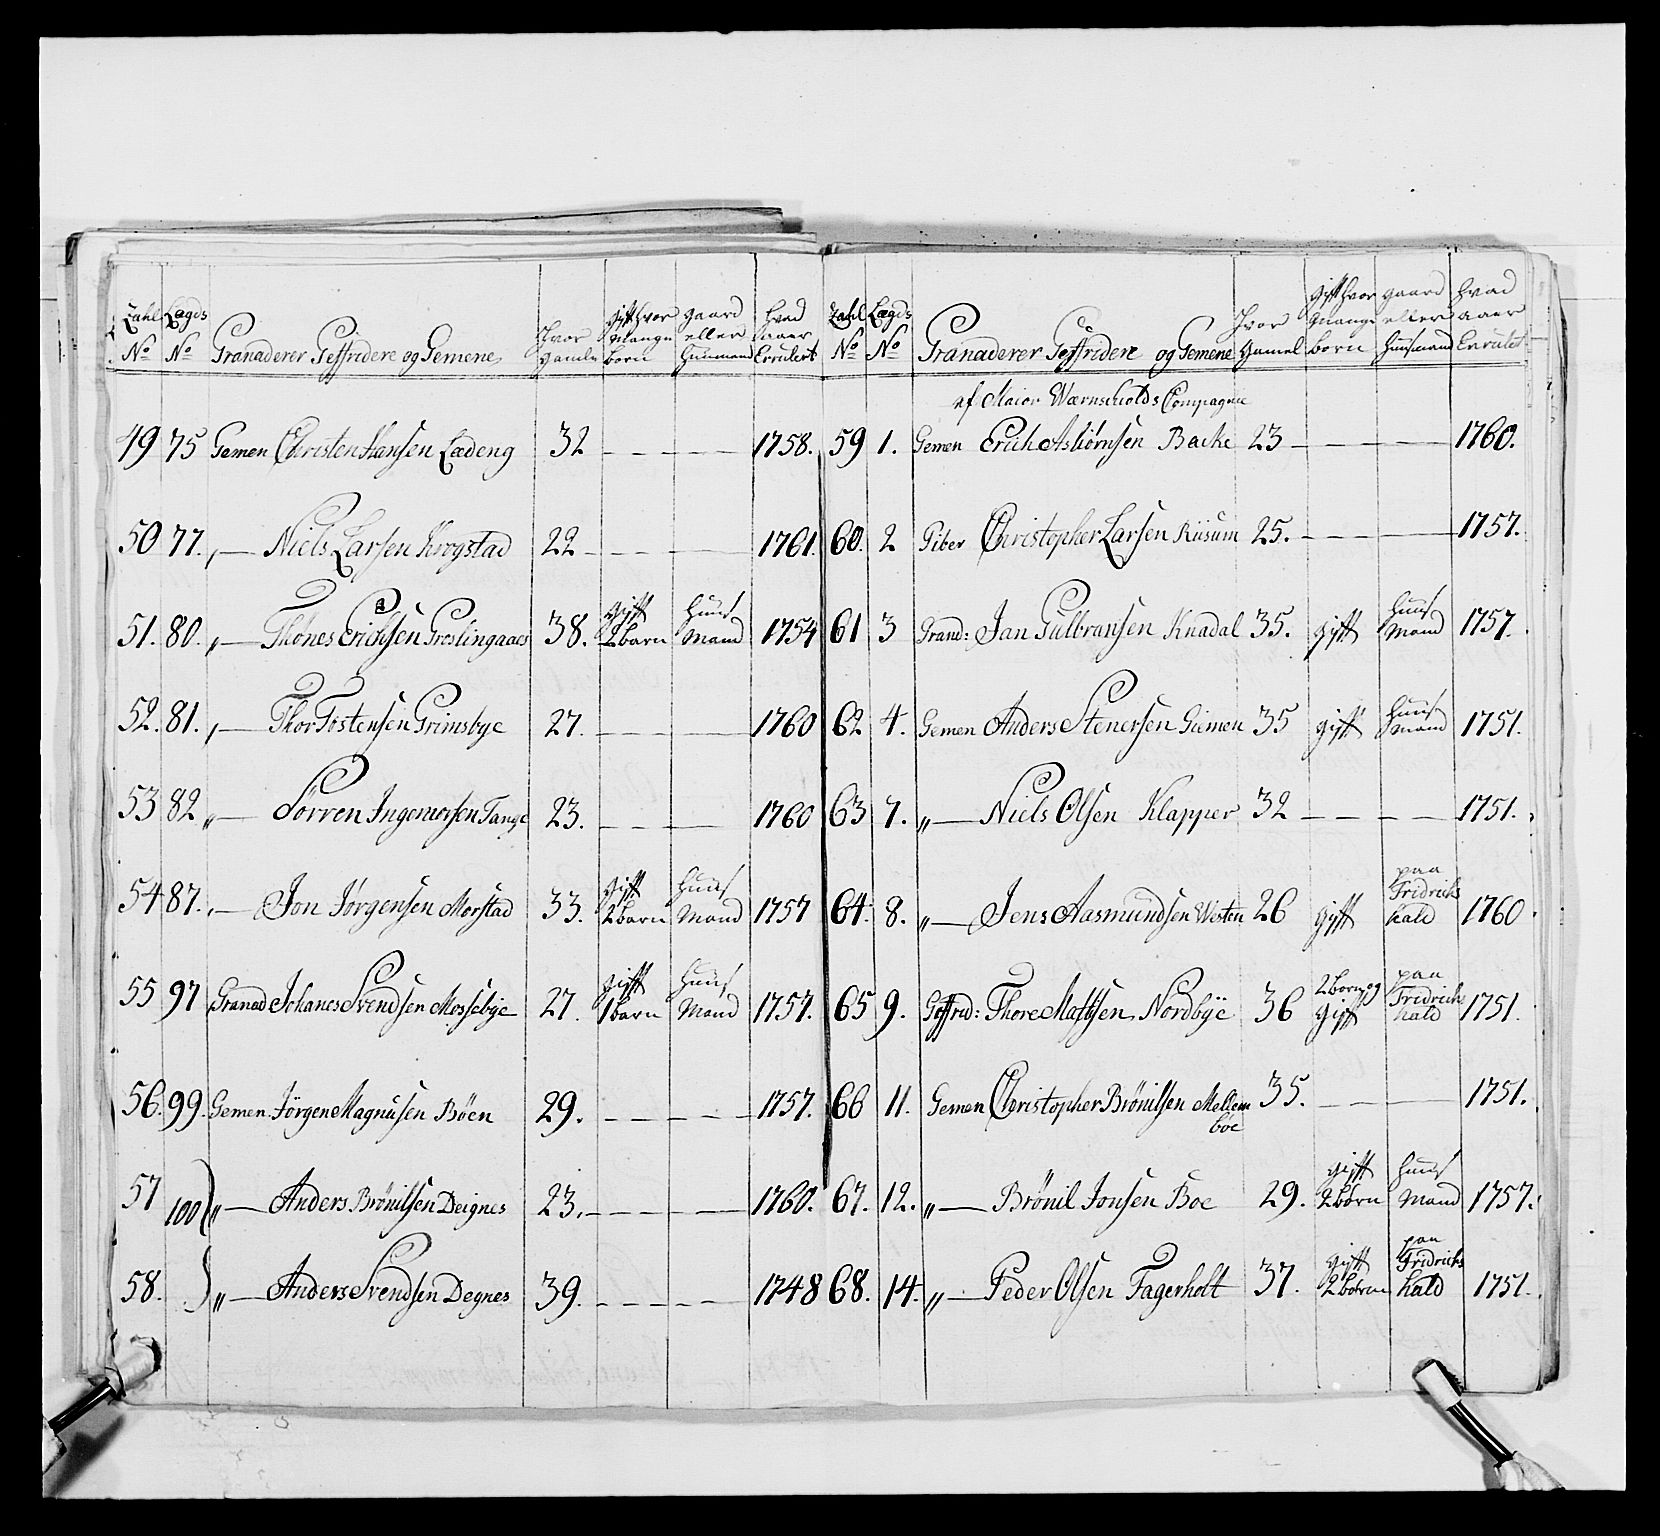 Zahl No | Lægds No | Granaderer Geffridere og Gemene | Hvor gamle | gift hvor mange born | gaard eller Huusmand | hvad aaer Enrulert
49 75 Gemen Christen Hansen Ladeng 32 — — — 1758.
50 77. „— Niels Larsen Krogstad 22 — — — 1761
51. 80. „— Thones Erichsen Greslingaaes 38. gift 2 barn Huus Mand 1754
52. 81. „— Thor Tostensen Grimsbye 27. — — — 1760
53 82 „— Sørren Ingemorsen Tange 23. — — — 1760
54 87. „— Jon Jørgensen Morstad 33. gift 2 barn Huus Mand 1757
55 97 Granad Johanes Svendsen Mossebye 27. gift 1 barn Huus Mand 1757.
56. 99. Gemen Jørgen Magnusen Böen 29. — — — 1757.
57 100 „— Anders Brönilsen Deignes 23. — — — 1760.
58. „— Anders Svendsen Degnes 39. — — — 1748
Zahl No | Lægds No | Granaderer Geffridere og Gemene | Hvor Gamel | gift hvor mange born | gaard eller huusmand | hvad aaer Enrulet
af Maior Wærnscholds Compagnie
59 1. Gemen Erich Asbiørnsen Backe 23 — — — 1760.
60. 2 Piber Christopher Larsen Riisum 25. — — — 1757.
61 3 Grand: Jan Gulbransen Knadal 35. gift huus Mand 1757.
62 4. Gemen Anders Stenersen Giemen 35 gift huus mand 1751.
63 7. „— Niels Olsen Klapper 32 — — — 1751.
64. 8. „— Jens Aasmundsen Westen 26 gift paa Fridrichs hald 1760
65 9. Geffrid: Thore Mattsen Nordbye 36 2 born og gift paa Fridrichs hald 1751.
66 11. Gemen Christopher Brönilsen Mellem böe 35. — — — 1751.
67. 12. „— Brönil Jonsen Boe 29. gift 2 børn huus Mand 1757.
68. 14. „— Peder Olsen Fagerholt 37. gift 2 børn paa Fridrichs hald 1751.